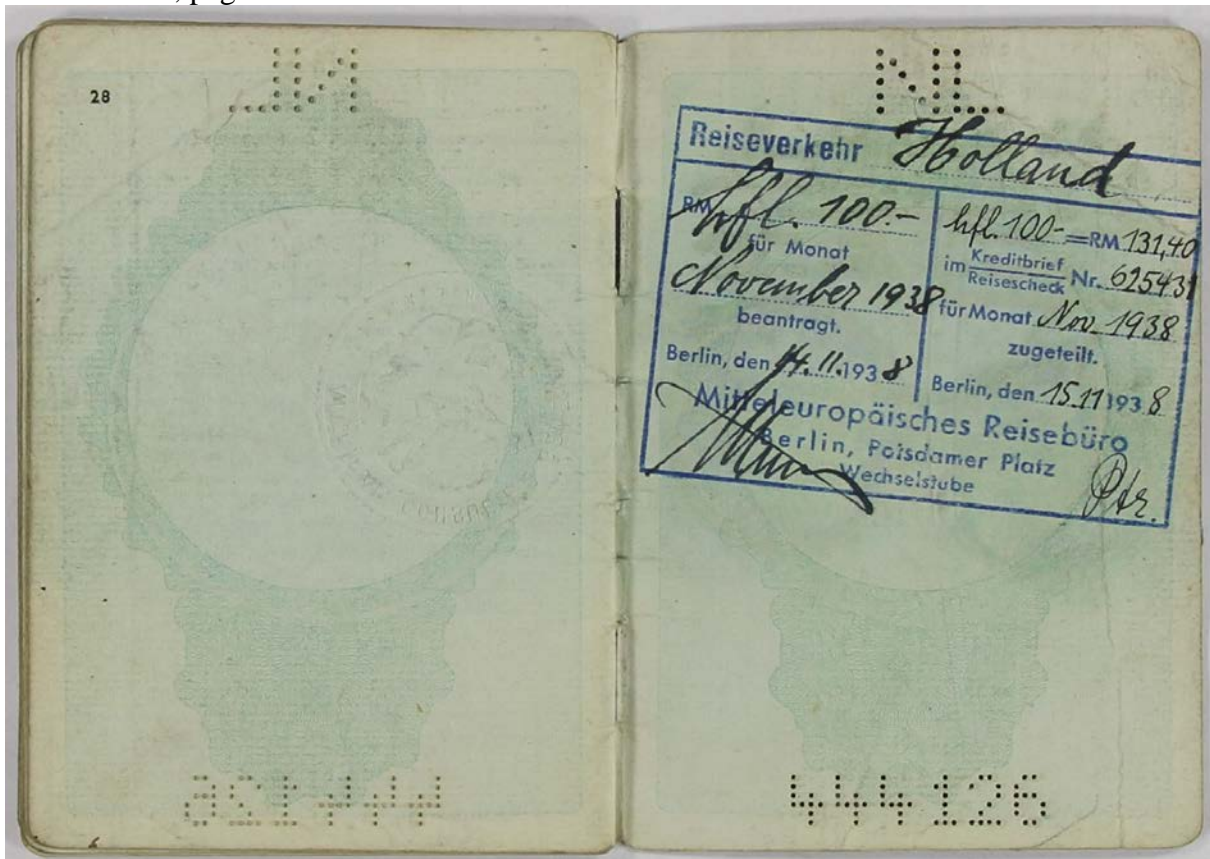 28
NL
Reiseverkehr Holland
RM hfl. 100.-
für Monat
November 1938
beantragt.
Berlin, den 14.11.1938
hfl. 100.- = RM 131,40
im Kreditbrief
Reisescheck Nr. 625431
für Monat Nov. 1938
zugeteilt.
Berlin, den 15.11 1938
Mitteleuropäisches Reisebüro
Berlin, Potsdamer Platz
Wechselstube
Ptr.
444126